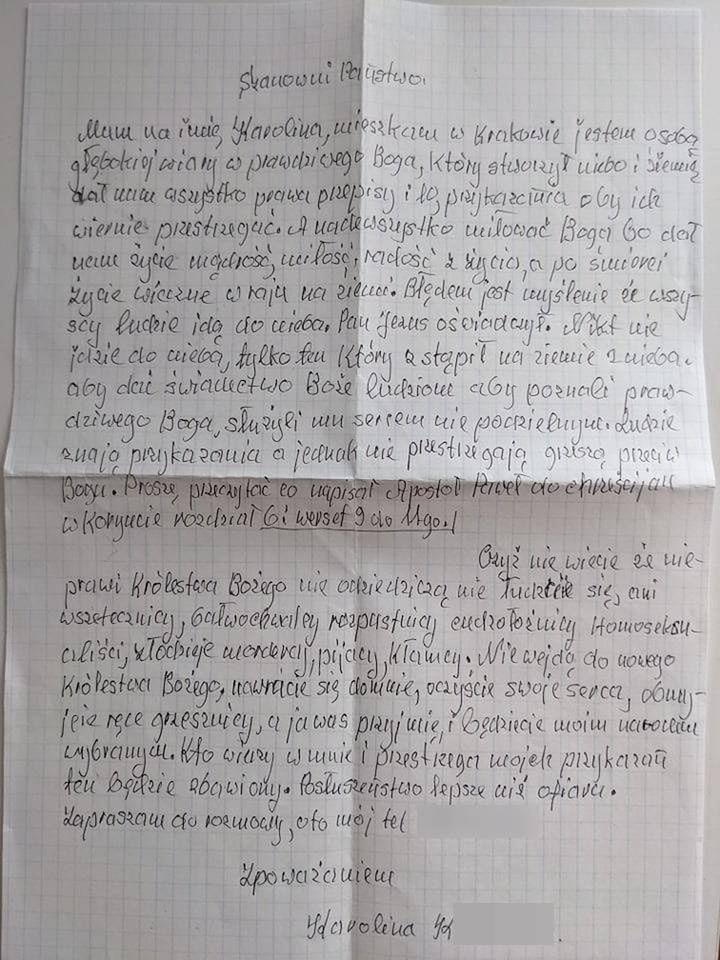 Szanowni Państwo.
Mam na imię Karolina, mieszkam w Krakowie jestem osobą
głębokiej wiary w prawdziwego Boga, który stworzył niebo i ziemię
dał nam wszystko prawa przepisy i 10, przykazania aby ich
wiernie przestrzegać. A nadewszystko miłować Boga bo dał
nam życie mądrość, miłość, radość z życia, a po śmierci
życie wieczne w raju na ziemi. Błędem jest myślenie że wszy-
scy ludzie idą do nieba. Pan Jezus oświadczył. Nikt nie
idzie do nieba, tylko ten który zstąpił na ziemie z nieba.
aby dać świadectwo Boże ludziom aby poznali praw-
dziwego Boga, służyli mu sercem nie podzielnym. Ludzie
znają przykazania a jednak nie przestrzegają grzeszą przeciw
Bogu. Proszę przeczytać co napisał Apostoł Paweł do chrześcijan
w Koryncie rozdział 6 i werset 9 do 11go.
Czyż nie wiecie że nie-
prawi Królestwa Bożego nie odziedziczą nie łudźcie się, ani
wszetecznicy, bałwochwalcy rozpustnicy cudzołożnicy Homoseksu-
aliści, złodzieje mordercy, pijacy, kłamcy. Nie wejdą do nowego
Królestwa Bożego, nawróćcie się do mnie, oczyście swoje serca, obmy-
jcie ręce grzesznicy, a ja was przyjmię, i będziecie moim narodem
wybranym. Kto wierzy w mnie i przestrzega mojch przykazań
ten będzie zbawiony. Posłuszeństwo lepsze niż ofiara.
Zapraszam do rozmowy, oto mój tel
Zpoważaniem
Karolina K